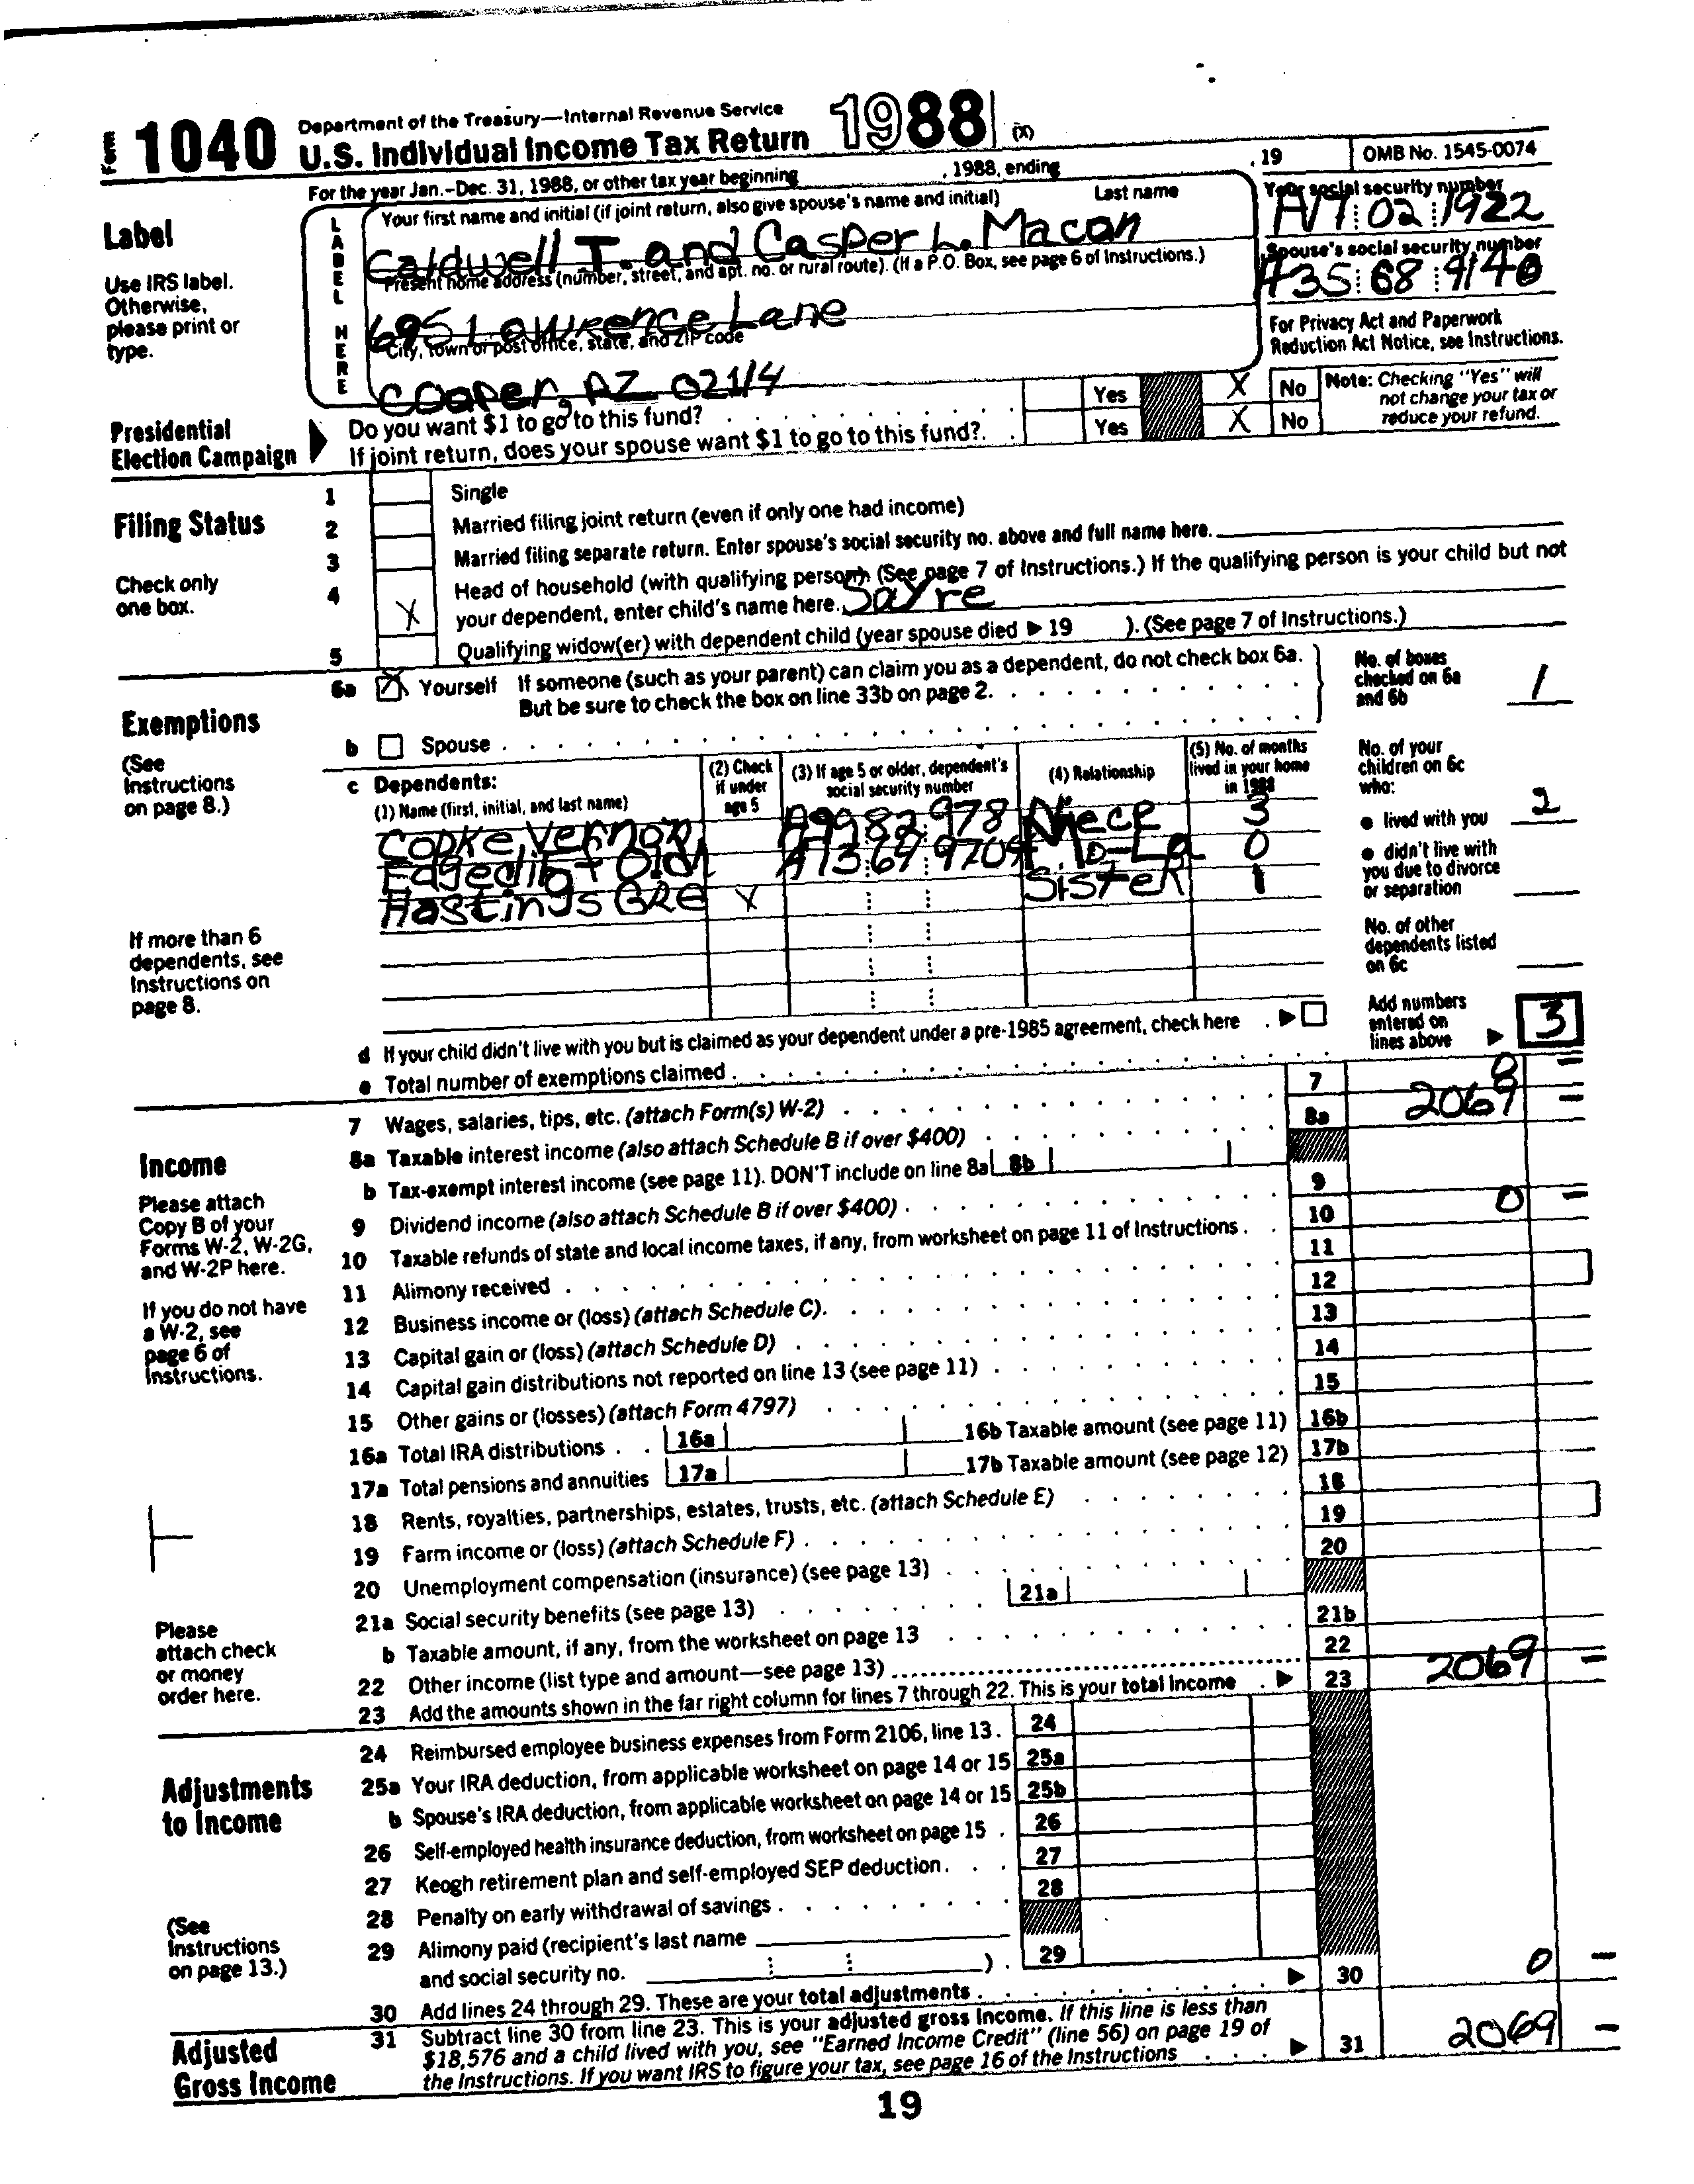 Form 1040 Department of the Treasury—Internal Revenue Service
U.S. Individual Income Tax Return 1988 (X)
For the year Jan.–Dec. 31, 1988, or other tax year beginning , 1988, ending , 19 OMB No. 1545-0074
Label
Use IRS label.
Otherwise,
please print or
type.
LABEL HERE
Your first name and initial (if joint return, also give spouse's name and initial) Last name
Caldwell T. and Casper L. Macon
Your social security number
02 1922
Present home address (number, street, and apt. no. or rural route). (If a P.O. Box, see page 6 of Instructions.)
695 Lawrence Lane
Spouse's social security number
A35 68 9148
City, town or post office, state, and ZIP code
Cooper, AZ 02114
For Privacy Act and Paperwork
Reduction Act Notice, see Instructions.
Presidential
Election Campaign
Do you want $1 to go to this fund? Yes X No
If joint return, does your spouse want $1 to go to this fund? Yes X No
Note: Checking "Yes" will
not change your tax or
reduce your refund.
Filing Status
Check only
one box.
1 Single
2 Married filing joint return (even if only one had income)
3 Married filing separate return. Enter spouse's social security no. above and full name here.
4 X Head of household (with qualifying person). (See page 7 of Instructions.) If the qualifying person is your child but not
your dependent, enter child's name here. Sayre
5 Qualifying widow(er) with dependent child (year spouse died ▶ 19 ). (See page 7 of Instructions.)
Exemptions
(See
Instructions
on page 8.)
6a X Yourself If someone (such as your parent) can claim you as a dependent, do not check box 6a.
But be sure to check the box on line 33b on page 2.
b Spouse
No. of boxes
checked on 6a
and 6b 1
c Dependents:
(1) Name (first, initial, and last name)
(2) Check
if under
age 5
(3) If age 5 or older, dependent's
social security number
(4) Relationship
(5) No. of months
lived in your home
in 1988
Copke, Vernon A99 82 978 Niece 3
A13 67 9709 0
Hastings GRG X Sister 1
If more than 6
dependents, see
Instructions on
page 8.
No. of your
children on 6c
who:
● lived with you 2
● didn't live with
you due to divorce
or separation
No. of other
dependents listed
on 6c
d If your child didn't live with you but is claimed as your dependent under a pre-1985 agreement, check here ▶
e Total number of exemptions claimed
Add numbers
entered on
lines above ▶ 3
Income
Please attach
Copy B of your
Forms W-2, W-2G,
and W-2P here.
If you do not have
a W-2, see
page 6 of
Instructions.
Please
attach check
or money
order here.
7 Wages, salaries, tips, etc. (attach Form(s) W-2) 7 0 –
8a Taxable interest income (also attach Schedule B if over $400) 8a 2069 –
b Tax-exempt interest income (see page 11). DON'T include on line 8a 8b
9 Dividend income (also attach Schedule B if over $400) 9
10 Taxable refunds of state and local income taxes, if any, from worksheet on page 11 of Instructions 10 0 –
11 Alimony received 11
12 Business income or (loss) (attach Schedule C) 12
13 Capital gain or (loss) (attach Schedule D) 13
14 Capital gain distributions not reported on line 13 (see page 11) 14
15 Other gains or (losses) (attach Form 4797) 15
16a Total IRA distributions 16a 16b Taxable amount (see page 11) 16b
17a Total pensions and annuities 17a 17b Taxable amount (see page 12) 17b
18 Rents, royalties, partnerships, estates, trusts, etc. (attach Schedule E) 18
19 Farm income or (loss) (attach Schedule F) 19
20 Unemployment compensation (insurance) (see page 13) 20
21a Social security benefits (see page 13) 21a
b Taxable amount, if any, from the worksheet on page 13 21b
22 Other income (list type and amount—see page 13) 22
23 Add the amounts shown in the far right column for lines 7 through 22. This is your total income ▶ 23 2069 –
Adjustments
to Income
(See
Instructions
on page 13.)
24 Reimbursed employee business expenses from Form 2106, line 13 24
25a Your IRA deduction, from applicable worksheet on page 14 or 15 25a
b Spouse's IRA deduction, from applicable worksheet on page 14 or 15 25b
26 Self-employed health insurance deduction, from worksheet on page 15 26
27 Keogh retirement plan and self-employed SEP deduction 27
28 Penalty on early withdrawal of savings 28
29 Alimony paid (recipient's last name
and social security no. ) 29
30 Add lines 24 through 29. These are your total adjustments ▶ 30 0 –
Adjusted
Gross Income
31 Subtract line 30 from line 23. This is your adjusted gross income. If this line is less than
$18,576 and a child lived with you, see "Earned Income Credit" (line 56) on page 19 of
the Instructions. If you want IRS to figure your tax, see page 16 of the Instructions ▶ 31 2069 –
19